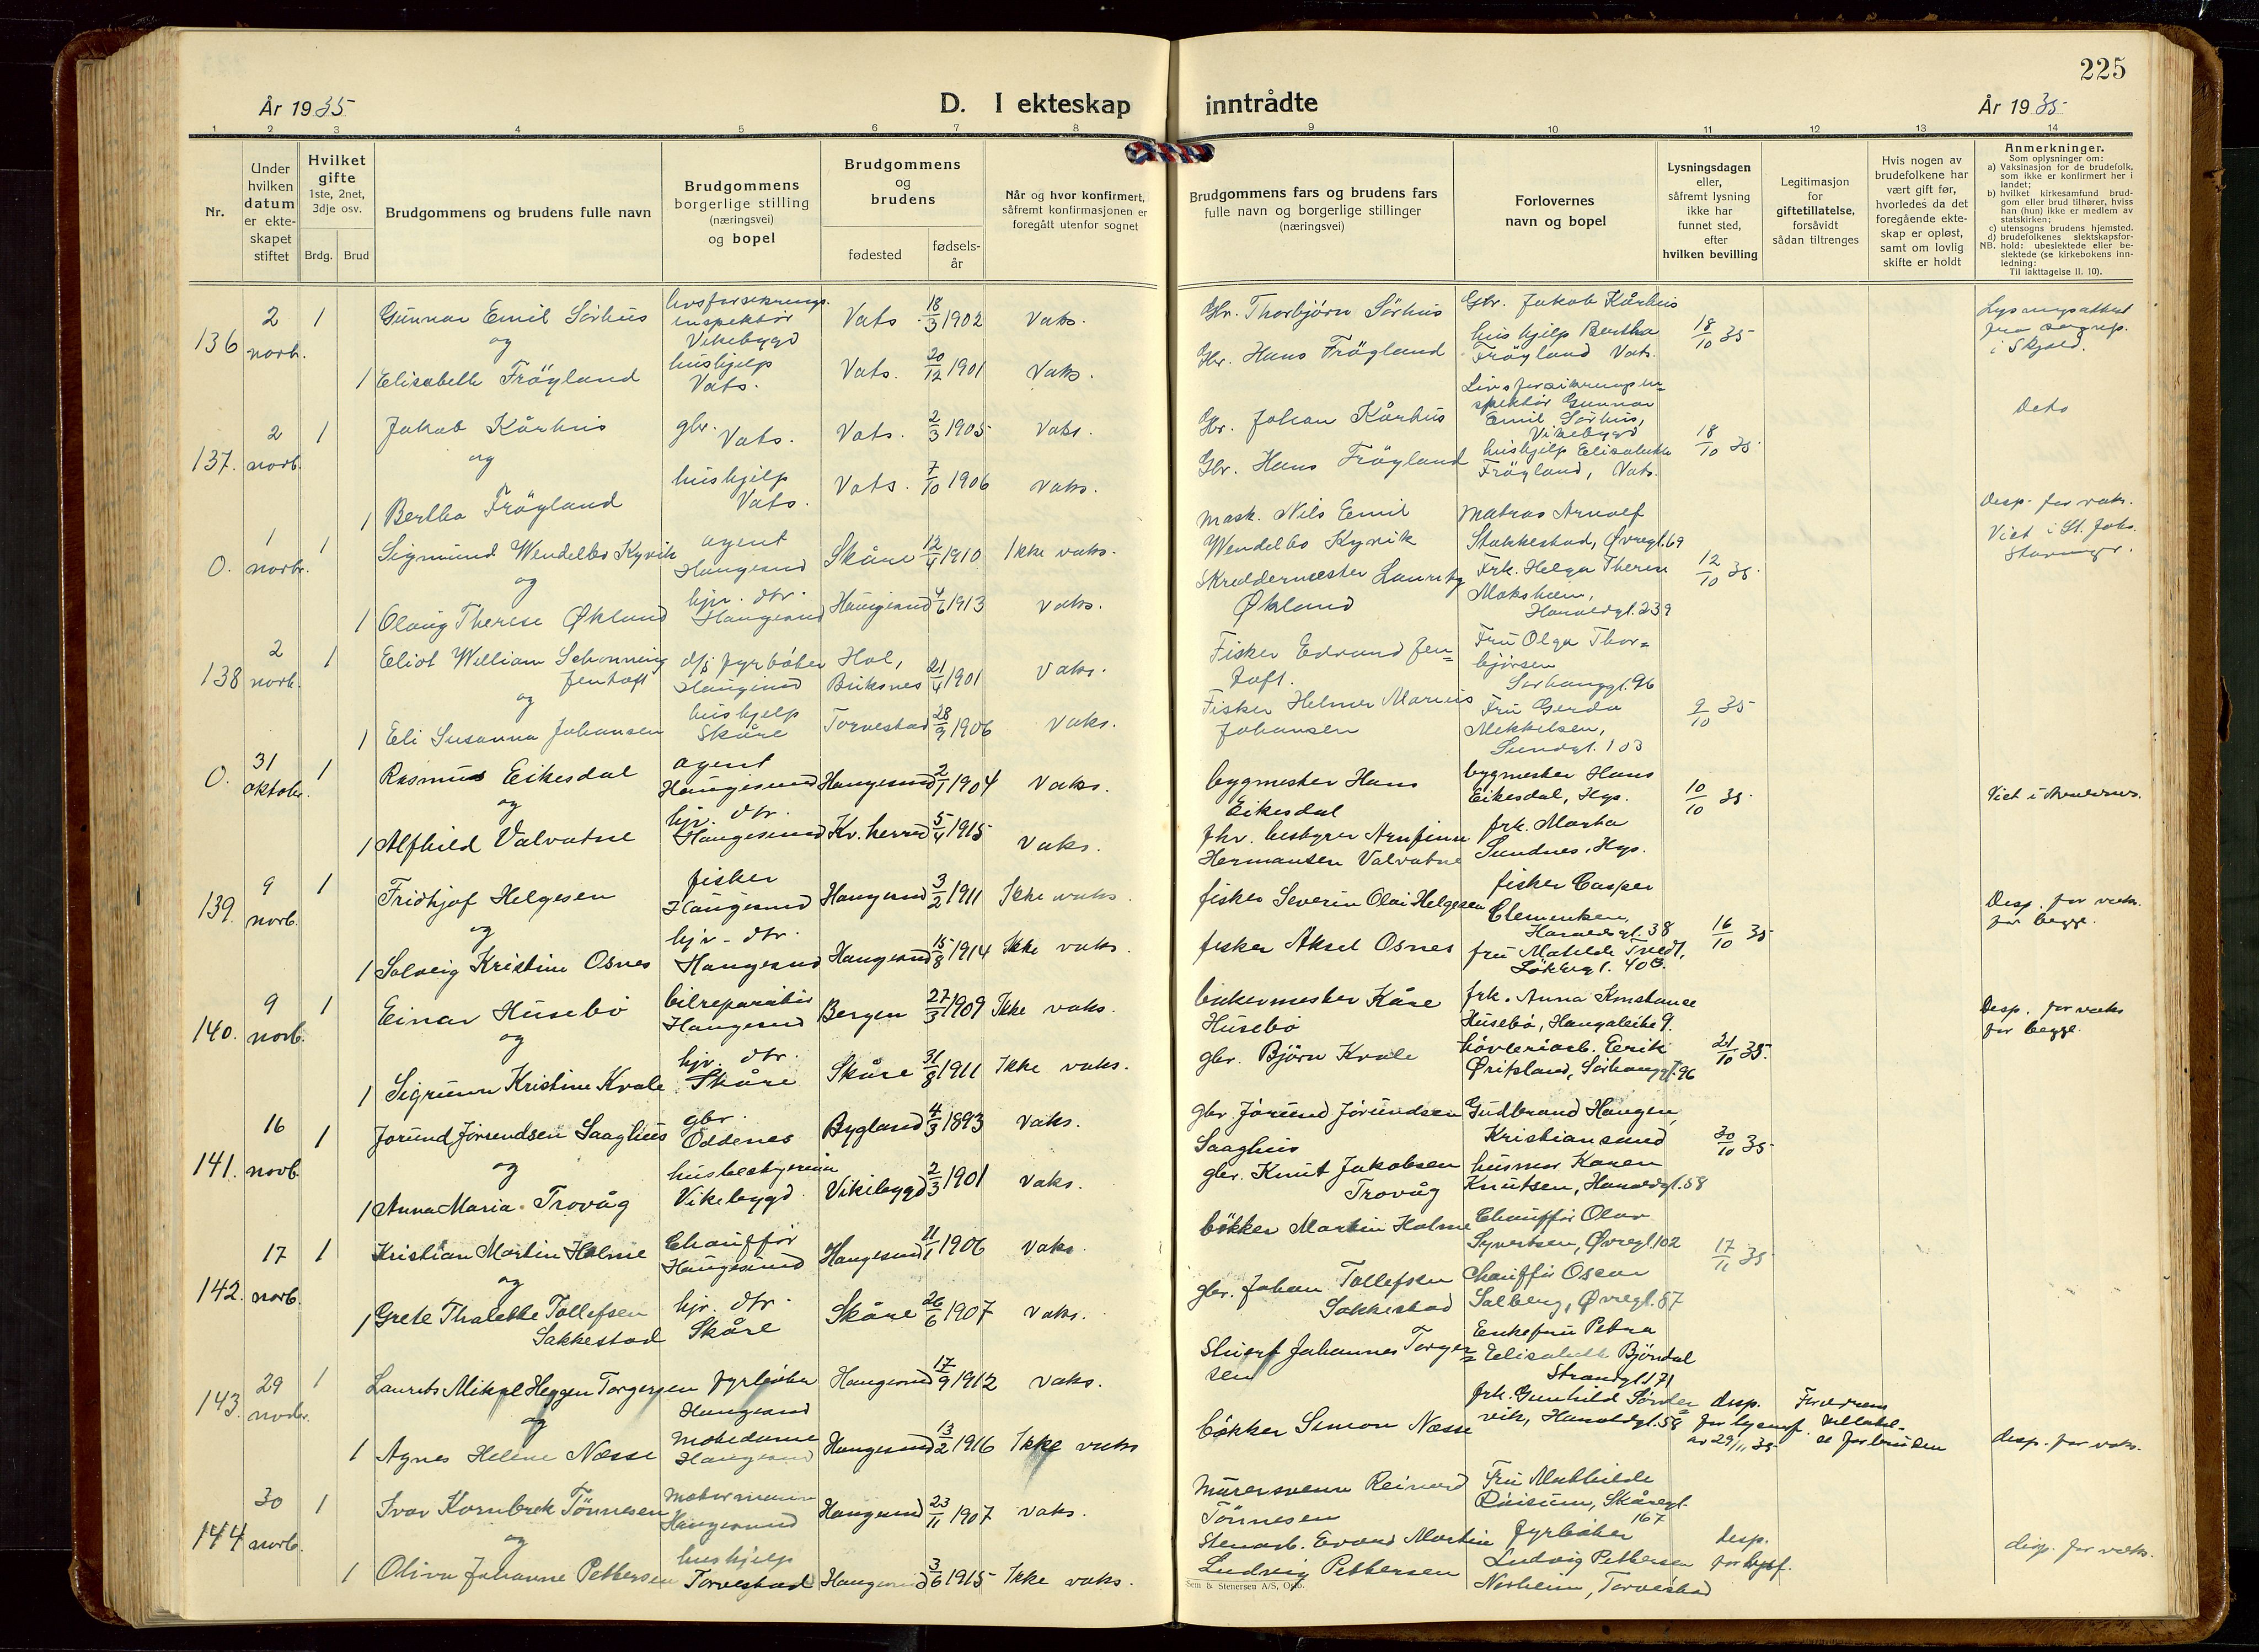 225
År 1935
D. I ekteskap inntrådte
År 1935
1 2 3 4 5 6 7 8 9 10 11 12 13 14
Nr.
Under hvilken datum er ekte-skapet stiftet
Hvilket gifte 1ste, 2net, 3dje osv.
Brdg. Brud
Brudgommens og brudens fulle navn
Brudgommens borgerlige stilling (næringsvei) og bopel
Brudgommens og brudens
fødested
fødsels-år
Når og hvor konfirmert, såfremt konfirmasjonen er foregått utenfor sognet
Brudgommens fars og brudens fars fulle navn og borgerlige stillinger (næringsvei)
Forlovernes navn og bopel
Lysningsdagen eller, såfremt lysning ikke har funnet sted, efter hvilken bevilling
Legitimasjon for giftetillatelse, forsåvidt sådan tiltrenges
Hvis nogen av brudefolkene har vært gift før, hvorledes da det foregående ekte-skap er opløst, samt om lovlig skifte er holdt
Anmerkninger.
Som oplysninger om:
a) Vaksinasjon for de brudefolk, som ikke er konfirmert her i landet;
b) hvilket kirkesamfund brud-gom eller brud tilhører, hviss han (hun) ikke er medlem av statskirken;
c) utensogns brudens hjemsted.
d) brudefolkenes slektskapsfor-
NB. hold: ubeslektede eller be-slektede (se kirkebokens inn-ledning:
Til iakttagelse II. 10).
136 2 novb. 1 Gunnar Emil Sörhus livsforsikrings-inspektör Vikebygd Vats 18/3 1902 Vaks. Gbr. Thorbjörn Sörhus Gbr. Jakob Kårhus
og
1 Elisabeth Fröyland hushjelp Vats. Vats. 20/12 1901 Vaks. Gbr. Hans Fröyland hushjelp Bertha Fröyland Vats. 18/10 35
i Skjold.
137. 2 novb. 1 Jakob Kårhus gbr. Vats. Vats. 2/3 1905 Vaks. Gbr. Johan Kårhus Livsforsikringsin-spektör Gunnar Emil Sörhus, Vikebygd 18/10 35 Deto
og
1 Bertha Fröyland hushjelp Vats. Vats. 7/10 1906 Vaks. Gbr. Hans Fröyland hushjelp Elisabeth Fröyland, Vats.
0. 1 novbr. 1 Sigmund Wendelbo Kyvik agent Haugesund Skåre 12/4 1910 Ikke vaks. mask. Nils Emil Wendelbo Kyvik matros Arnolf Stakkestad, Øvregt. 69 12/10 35 Desp. for vaks. Viet i St. Joh. Stavanger.
og
1 Olaug Therese Økland hjv. dtr. Haugesund Haugesund 4/6 1913 vaks. Skreddermester Lauritz Økland Frk. Helga Therese Haraldsgt. 239
138 2 novb. 1 Eliot William Schonning Jentoft d/s fyrböter Haugesund Hol, 21/4 1901 Vaks. Fisker Edvard Jen=toft. Fru Olga Thor=björsen Sørhauggt. 96
og
1 Eli Susanna Johansen hushjelp Skåre Torvestad 28/9 1906 Vaks. Fisker Helmer Marius Johansen Fru Gerda Mikkelsen, Sundgt. 103 9/10 35
0. 31 oktobr. 1 Rasmus Eikesdal agent Haugesund Haugesund 2/1 1904 Vaks. bygmester Hans Eikesdal bygmester Hans Eikesdal, Hgs. 10/10 35
og
1 Alfhild Valvatne hjv. dtr. Haugesund Kv. herred 5/4 1915 Vaks. fhv. bestyrer Arnfinn Hermansen Valvatne frk. Marta Sundnes, Hgs.
139. 9 novb. 1 Fridtjof Helgesen fisker Haugesund Haugesund 3/2 1911 Ikke vaks. fisker Severin Olai Helgesen fisker Casper Clementsen, Haraldsgt. 38 16/10 35 Desp. for vaks. for begge.
og
1 Solveig Kristine Osnes hjv. dtr. Haugesund Haugesund 15/8 1914 Ikke vaks. fisker Aksel Osnes fru Matilde Tvedt,
140. 9 novb. 1 Einar Husebö bilreparatör Haugesund Bergen 27/3 1909 Ikke vaks. bakermester Kåre Husebö frk. Anna Konstance Husebö, 21/10 35. Desp. for vaks for begge.
og
1 Sigrunn Kristine Kvale hjv. dtr. Skåre Skåre 31/8 1911 Ikke vaks. gbr. Björn Kvale hövleriarb. Eerik Øritsland, Sørhauggt. 96
141. 16 novb. 1 Jorund Jorundsen Saaghus gbr. Oddenes Bygland 4/3 1893 Vaks. gbr. Jorund Jorundsen Saaghus Gudbrand Haugen, Kristiansand 30/10 35
og
1 Anna Maria Trovåg husbestyrerinne Vikebygd. Vikebygd 2/3 1901 Vaks. gbr. Knut Jakobsen Trovåg husmor Karen Knutsen, Haraldsgt. 58
142. 17 novb. 1 Kristian Martin Holme Chaufför Haugesund Haugesund 11/1 1906 Vaks. bökker Martin Holme Chaufför Olav Syvertsen, Øvregt. 102 17/11 35
og
1 Grete Thalette Tollefsen Sakkestad hjv. dtr. Skåre Skåre 26/6 1907 vaks. gbr. Johan Tollefsen Sakkestad Chaufför Oscar Salberg, Øvregt. 87
143. 29 novbr. 1 Laurits Mikal Heggen Torgersen fyrböter Haugesund Haugesund 17/9 1912 Vaks. Stuert Johannes Torger=sen Enkefru Petra Elisabeth Björdal Strandgt 171
og
1 Agnes Helene Næsse Motedame Haugesund Haugesund 13/2 1916 Ikke vaks bökker Simon Næsse frk. Gunhild Haraldsgt. 58 desp. for lysn. av 29/11 35 desp. for vaks.
144 30 novb. 1 Ivar Kornbrek Tönnesen Motormann Haugesund Haugesund 23/11 1907 vaks. Murersvenn Reinard Tönnesen Fru Mathilde Skåregt. 167
og
1 Oliva Johanne Pettersen hushjelp Torvestad Haugesund 3/6 1915 Ikke vaks. Stenarb. Evard Martin Ludvig Pettersen fyrböter Ludvig Pettersen Norheim, Torvestad Desp. for lysf. disp. for vaks.
Sem & Stenersen A/S, Oslo.